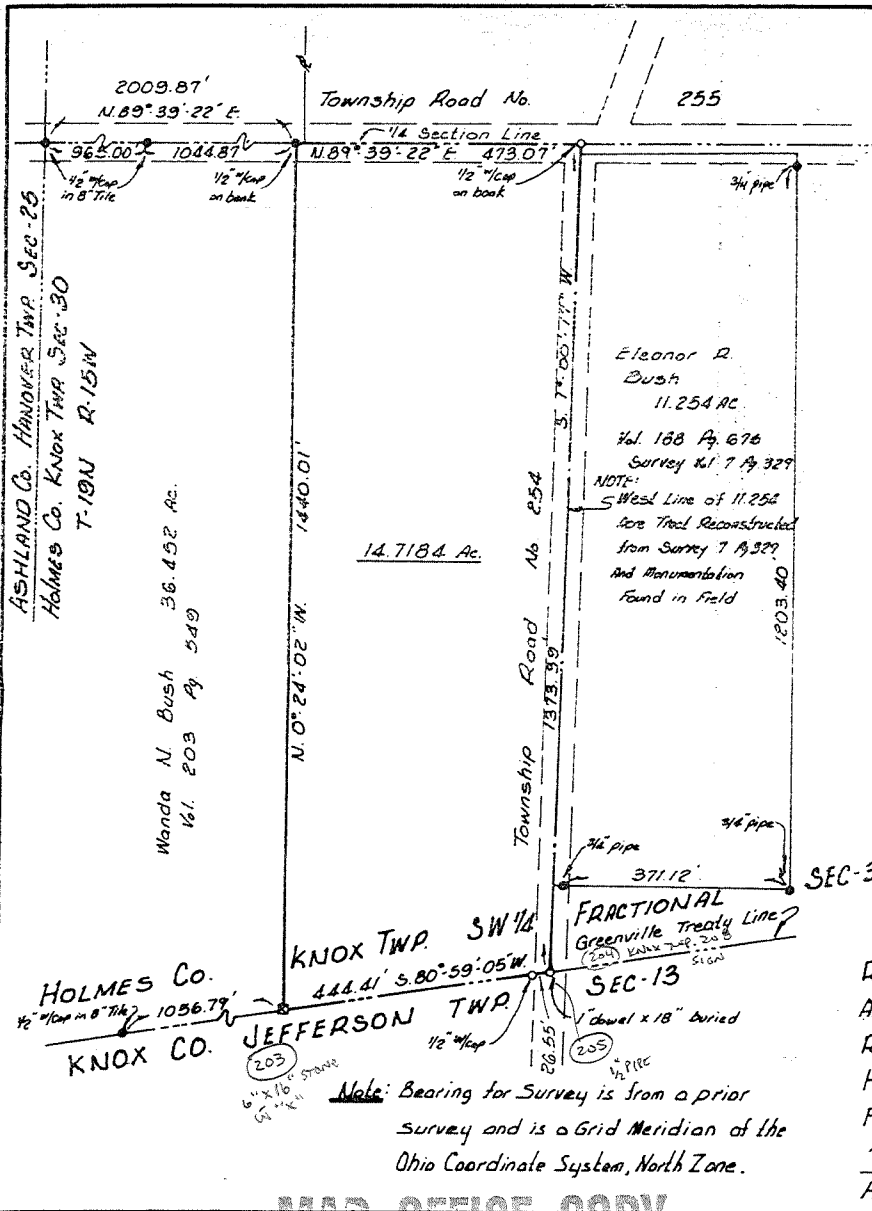 2009.87'
N.89°-39'-22" E.
Township Road No. 255
1/4 Section Line
965.00 1044.87 N.89°-39'-22" E 473.07'
1/2" w/cap
in 8" Tile
1/2" w/cap
on bank
1/2" w/cap
on bank
3/4 pipe
ASHLAND Co. HANOVER TWP. SEC-25
Holmes Co. KNOX TWP. SEC-30
T-19N R-15W
Wanda N. Bush 36.452 Ac.
Vol. 203 Pg. 549
N. 0°-24'-02" W. 1440.01'
14.7184 Ac.
Township Road No 254
1373.99
Eleanor R.
Bush
11.254 AC
Vol. 188 Pg. 676
Survey Vol 7 Pg 329
NOTE:
West Line of 11.254
Acre Tract Reconstructed
from Survey 7 Pg 329
And Monumentation
Found in Field
1203.40'
3/4" pipe
3/4" pipe
371.12'
SEC-3
FRACTIONAL
Greenville Treaty Line
204 KNOX TWP. 203
SIGN
KNOX TWP. SW 1/4
444.41' S.80°-59'-05" W.
SEC-13
HOLMES Co.
1/2" w/cap in 8" Tile
1056.79'
KNOX CO. JEFFERSON TWP.
1/2" w/cap
26.55'
1" dowel x 18" buried
203
6" x 16" STONE
W "X"
205
1/2" PIPE
Note: Bearing for Survey is from a prior
survey and is a Grid Meridian of the
Ohio Coordinate System, North Zone.
MAP OFFICE COPY